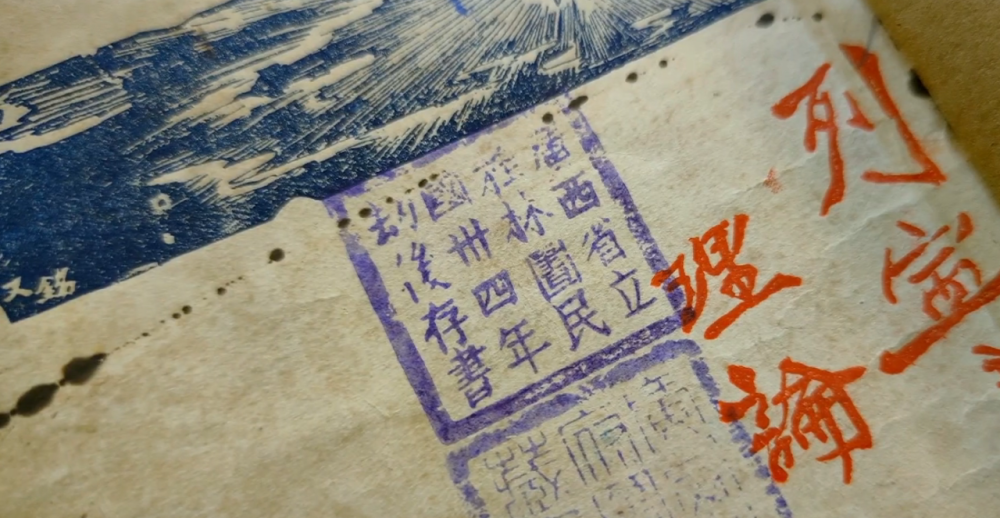 列寧
理論
廣西省立
桂林圕民
國卅四年
劫後存書